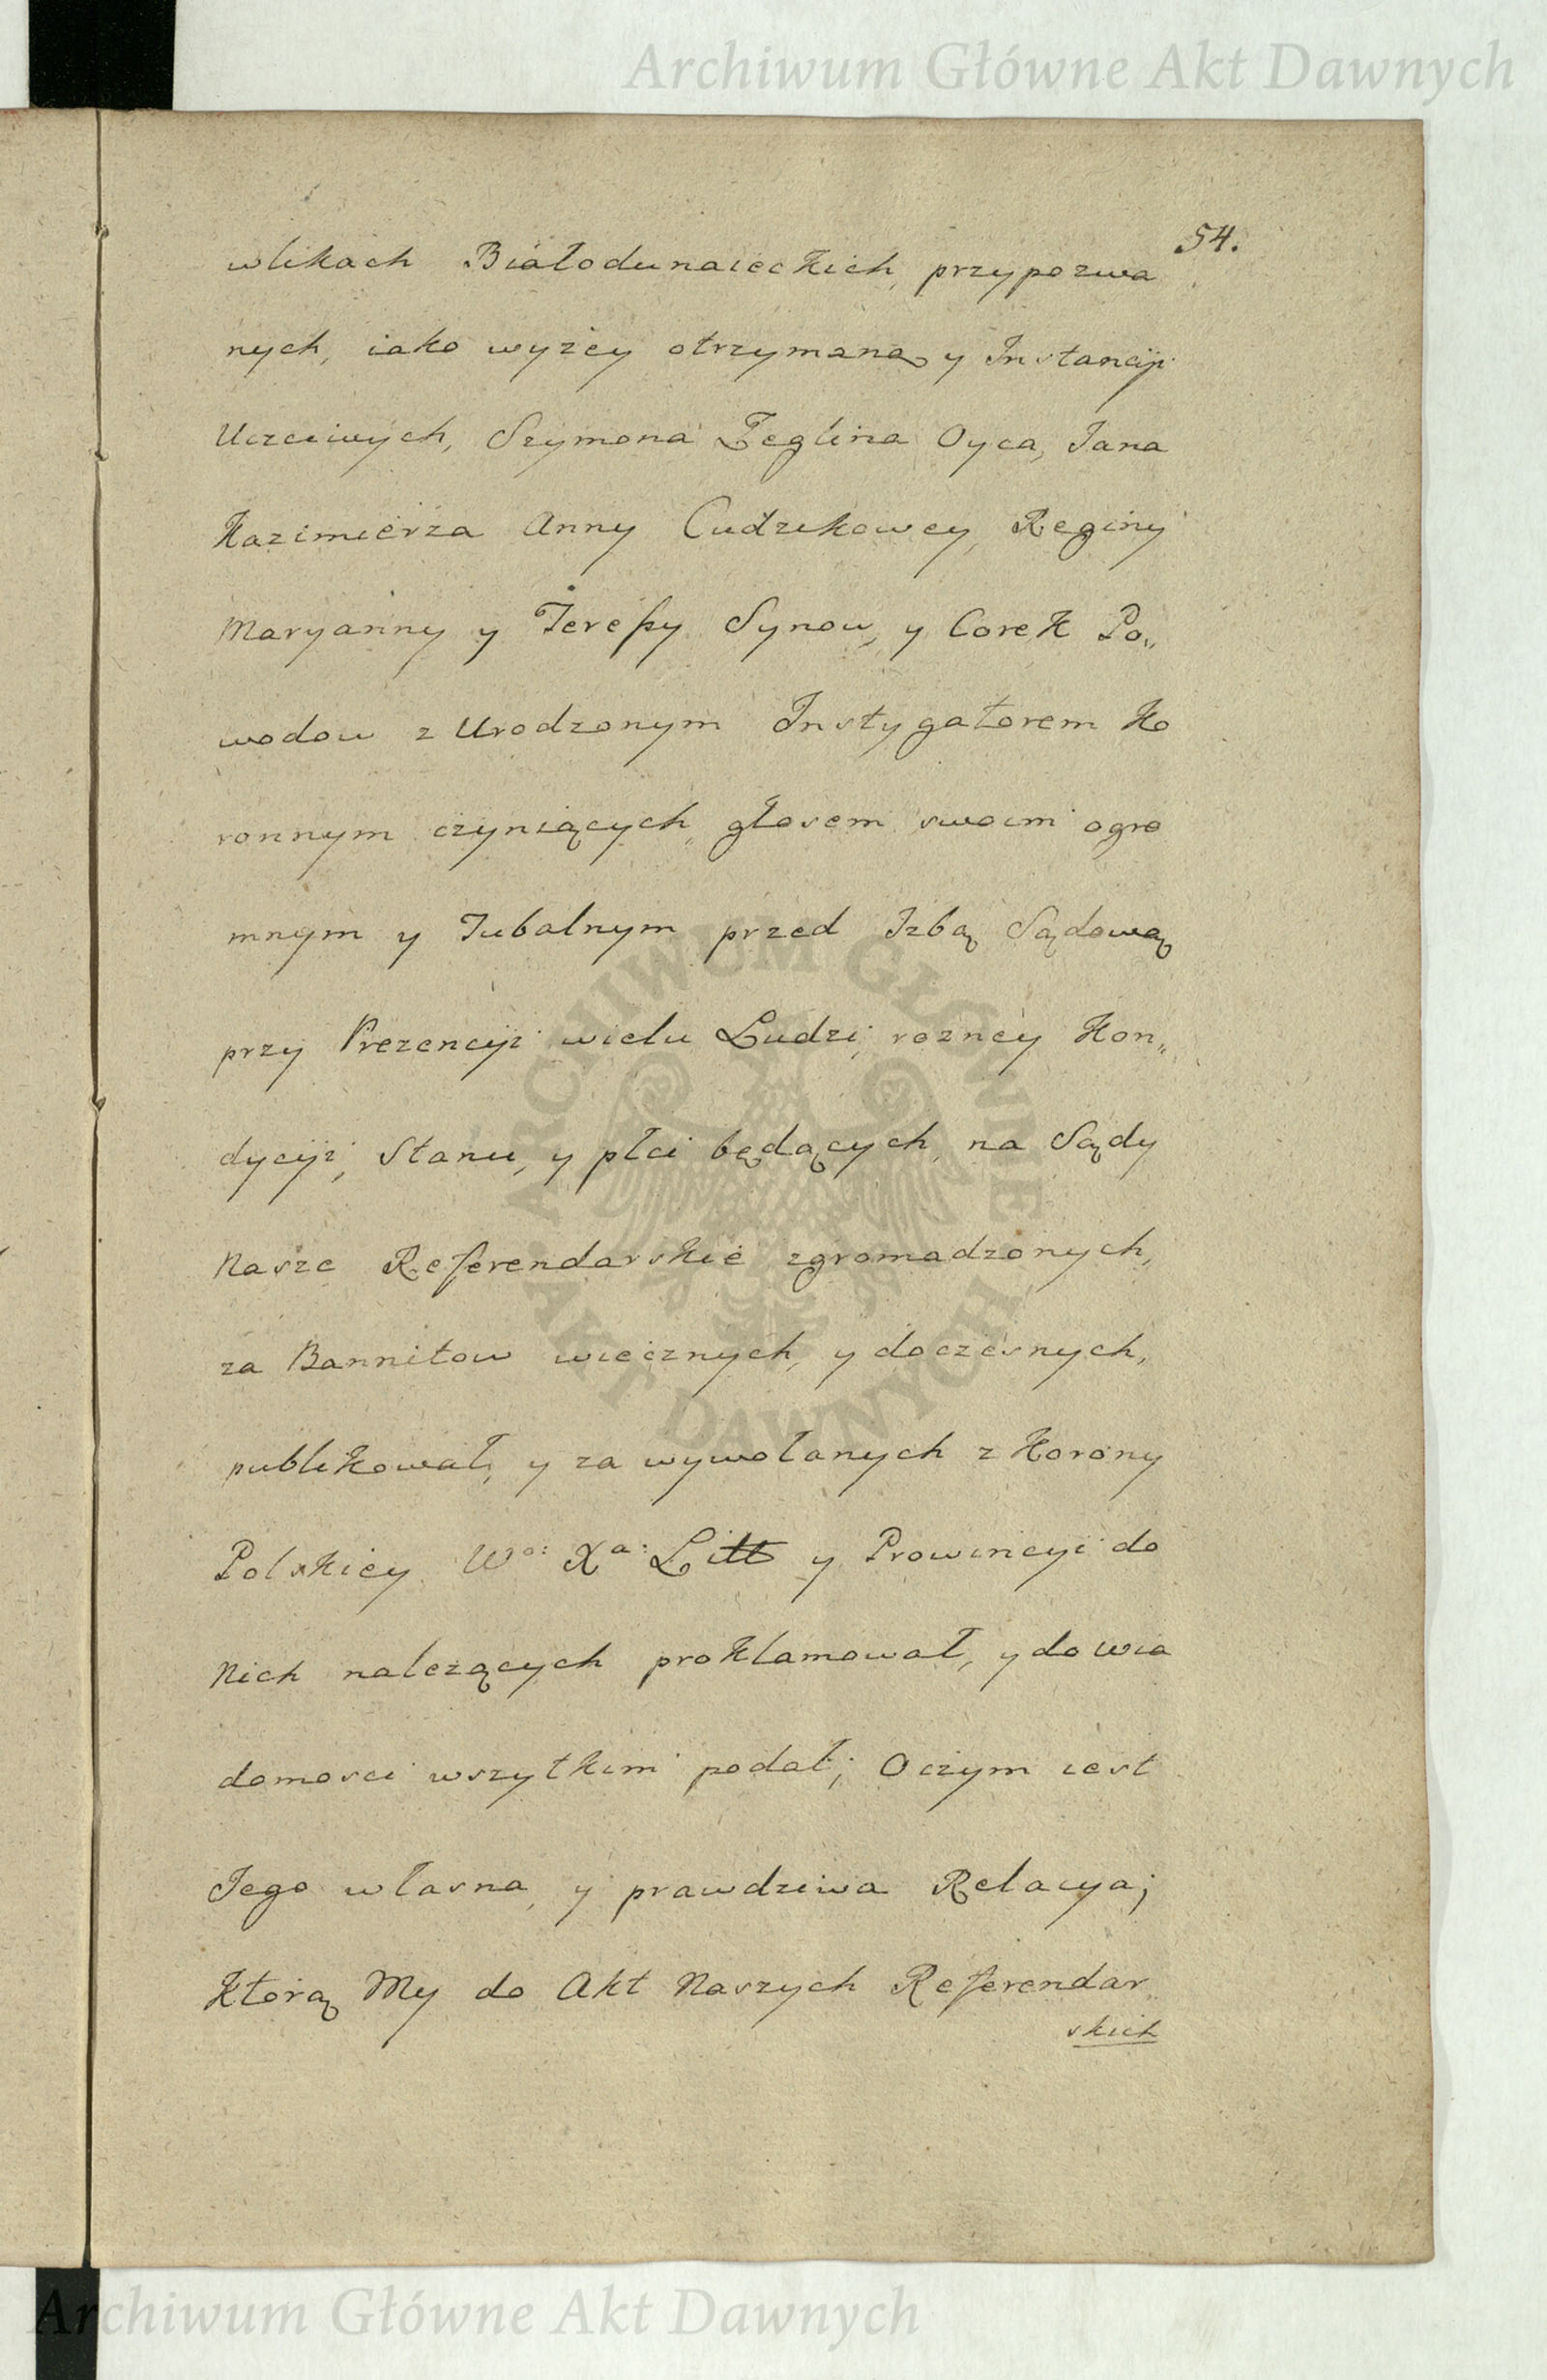 Archiwum Główne Akt Dawnych
54.
wlikach Białodunaieckich, przypozwa
nych, iako wyżey otrzymaną y Instancyi
Uczciwych, Szymona Zeglina Oyca, Jana
Kazimierza Anny Cudzikowey, Reginy
Maryanny y Teressy Synow, y Corek Po„
wodow z Urodzonym Instygatorem Ko
ronnym czyniących, głosem swoim ogro
mnym y Tubalnym przed Izbą Sądową
przy Prezencyi wielu Ludzi, rozney Kon„
dycyi, Stanu, y płci będących, na Sądy
Nasze Referendarskie zgromadzonych,
za Bannitow wiecznych, y doczesnych,
publikował, y za wywołanych z Korony
Polskiey Wo: Xa: Litt y Prowincyi do
Nich nalezących proklamował, y do wia
domosci wszytkim podał; O czym iest
Jego własna, y prawdziwa Relacya;
Którą My do Akt Naszych Referendar
skich
ARCHIWUM GŁÓWNE AKT DAWNYCH
Archiwum Główne Akt Dawnych